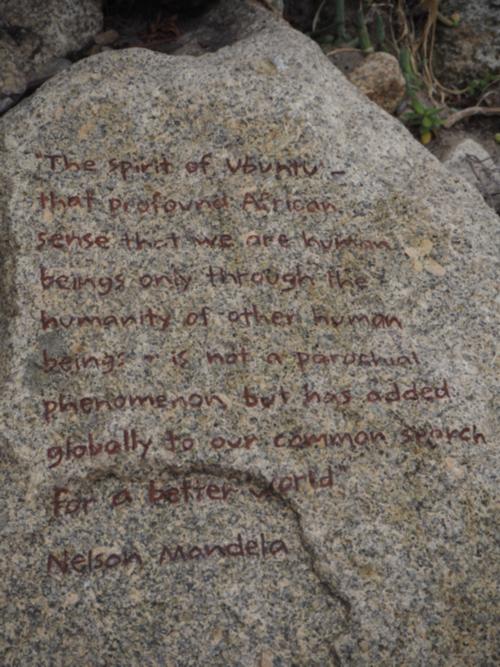 "The spirit of Ubuntu -
that profound African
sense that we are human
beings only through the
humanity of other human
beings - is not a parochial
phenomenon, but has added
globally to our common search
for a better world"
Nelson Mandela